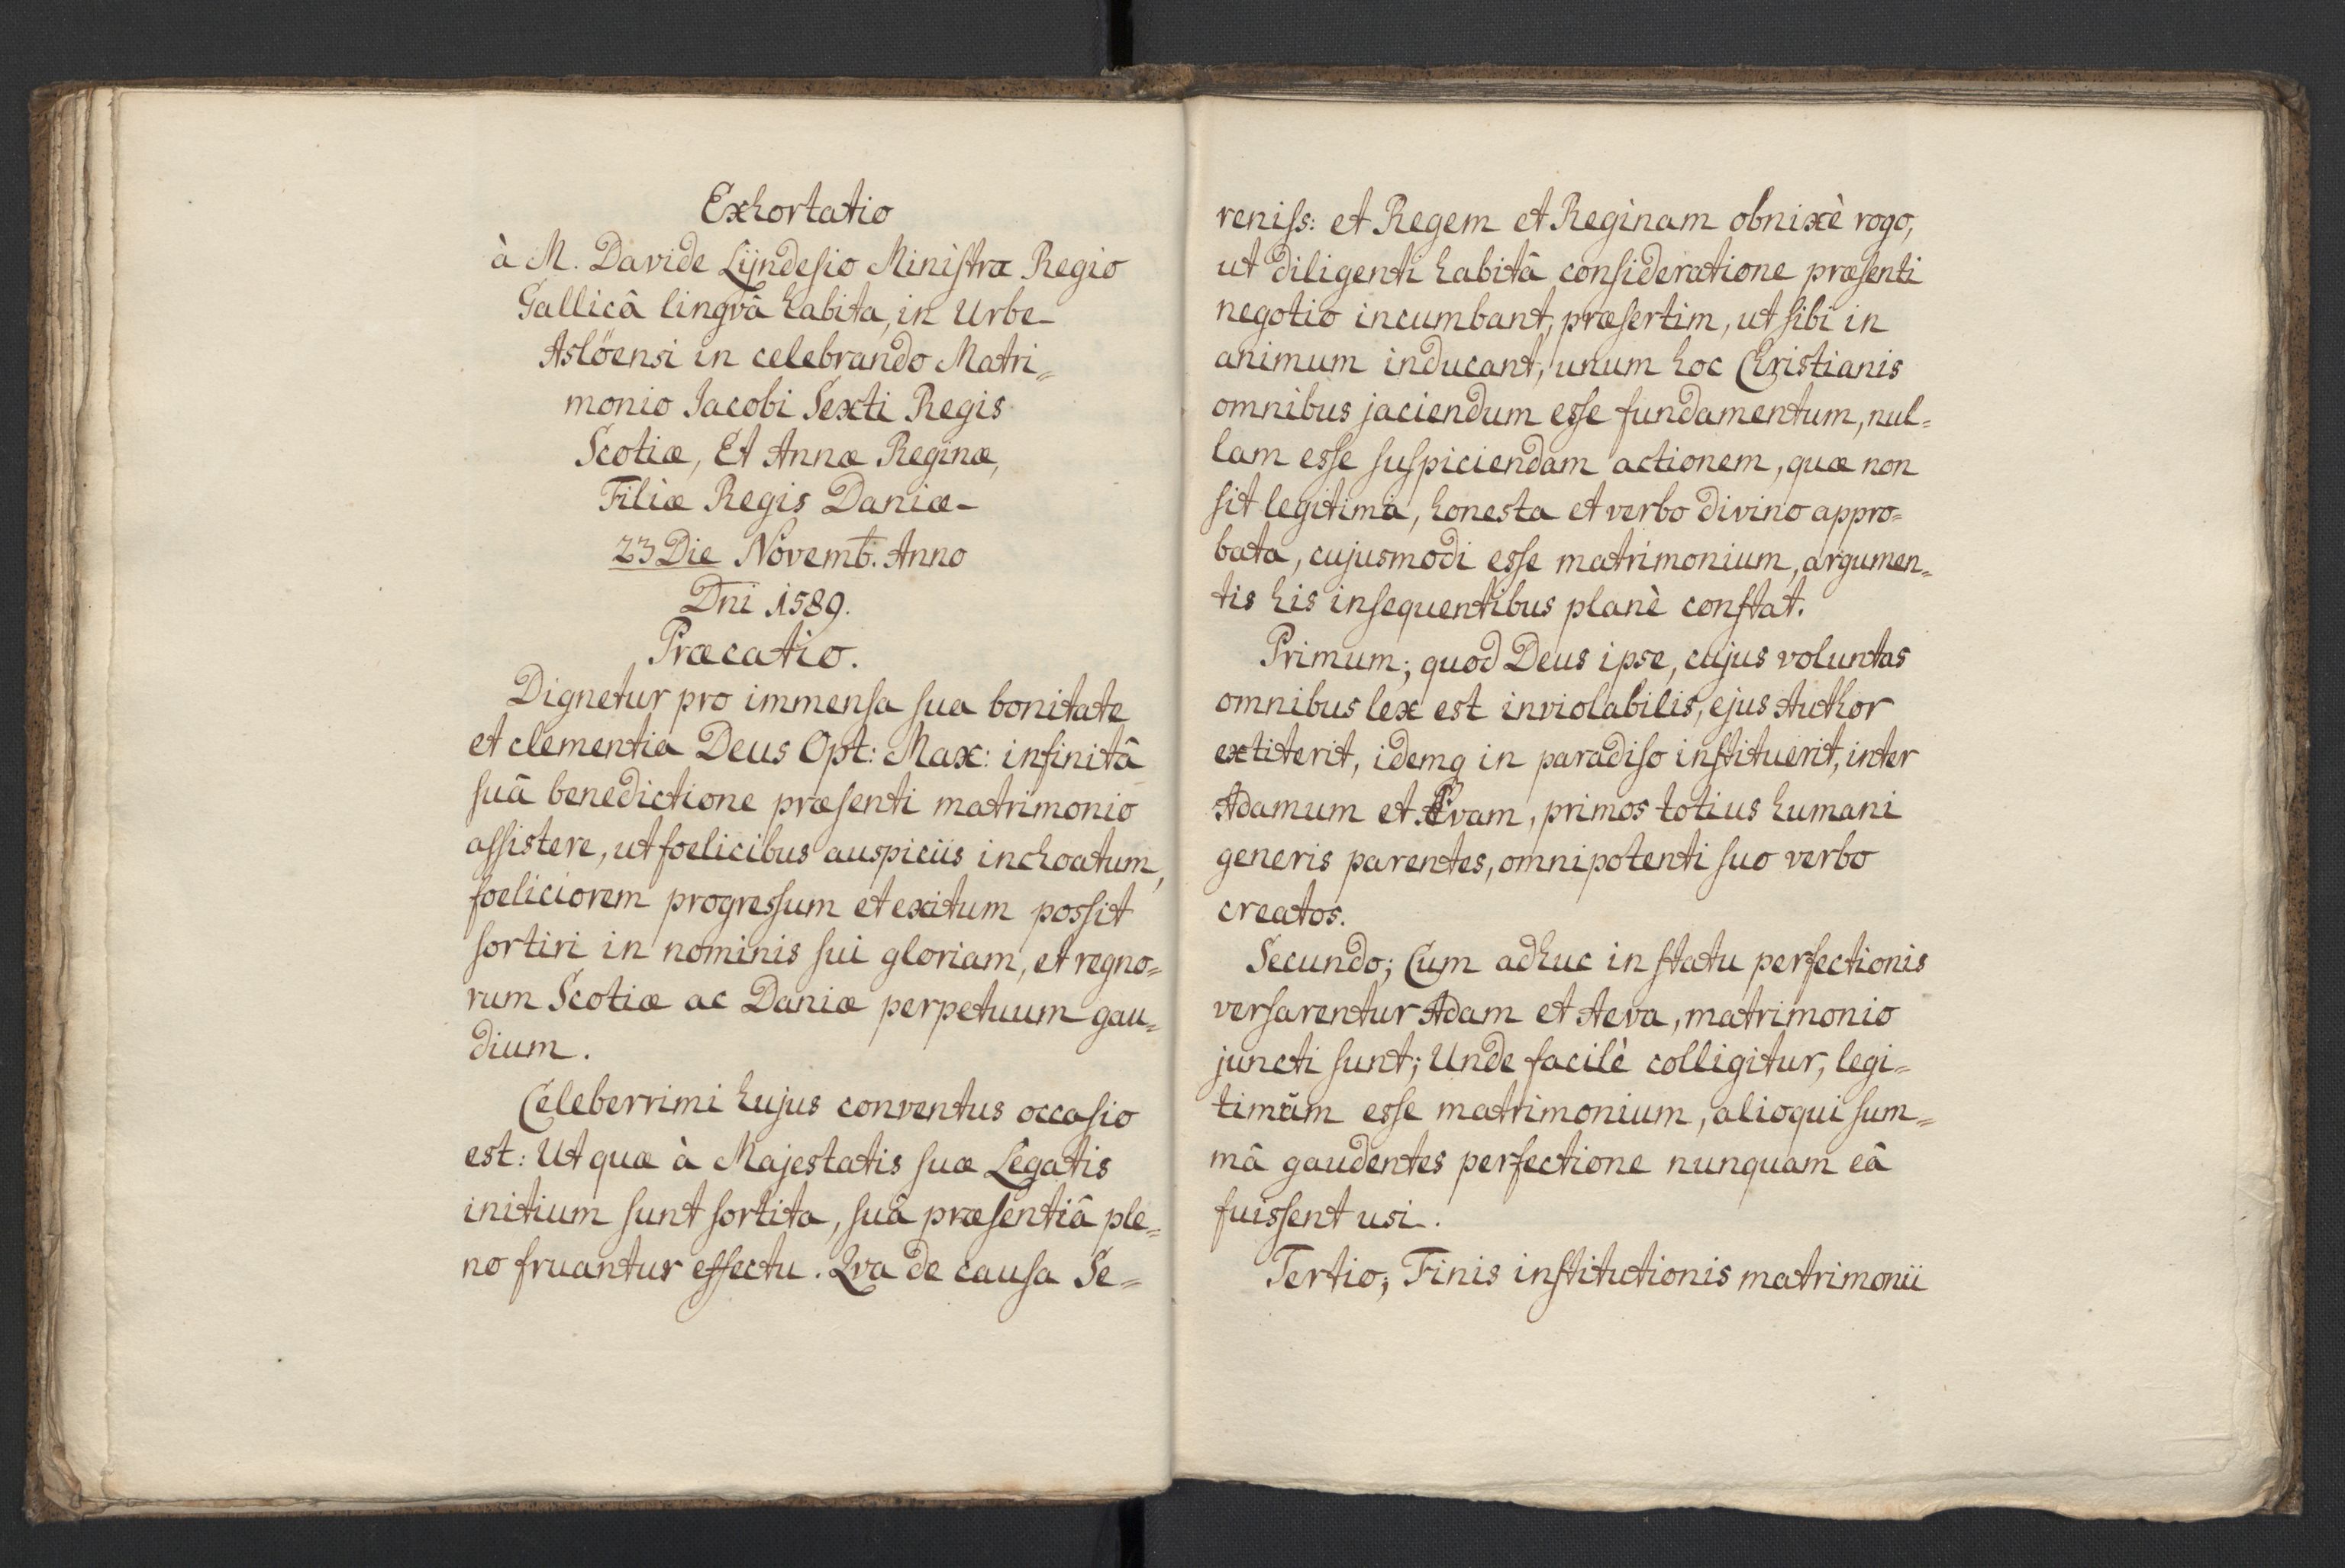 Exhortatio
à M. Davide Lijndesio Ministro Regio
Gallicâ lingvâ habita, in Urbe
Aslöensi in celebrando Matri=
monio Jacobi Sexti Regis
Scotiæ, Et Annæ Reginæ,
Filiæ Regis Daniæ
23 Die Novemb. Anno
Dni 1589.
Præcatio.
Dignetur pro immensa sua bonitate
et clementia Deus Opt: Max: infinitâ
suâ benedictione præsenti matrimonio
assistere, ut foelicibus auspiciis inchoatum,
foeliciorem progressum et exitum possit
sortiri in nominis sui gloriam, et regno=
rum Scotiæ ac Daniæ perpetuum gau=
dium.
Celeberrimi hujus conventus occasio
est: Ut quæ à Majestatis suæ Legatis
initium sunt sortita, suâ præsentiâ ple=
no fruantur effectu. Qva de causa Se=
reniss: et Regem et Reginam obnixè rogo,
ut diligenti habitâ consideratione præsenti
negotio incumbant, præsertim, ut sibi in
animum inducant, unum hoc Christianis
omnibus jaciendum esse fundamentum, nul=
lam esse suspiciendam actionem, quæ non
sit legitima, honesta et verbo divino appro=
bata, cujusmodi esse matrimonium, argumen=
tis his insequentibus planè constat.
Primum; quod Deus ipse, cujus voluntas
omnibus lex est inviolabilis, ejus Author
extiterit, idemq in paradiso instituerit, inter
Adamum et Evam, primos totius humani
generis parentes, omnipotenti suo verbo
creatos.
Secundo; Cum adhuc in statu perfectionis
versarentur Adam et Aeva, matrimonio
juncti sunt; Unde facilè colligitur, legi=
timum esse matrimonium, alioqui sum=
mâ gaudentes perfectione nunquam eâ
fuissent usi.
Tertio; Finis institutionis matrimonii